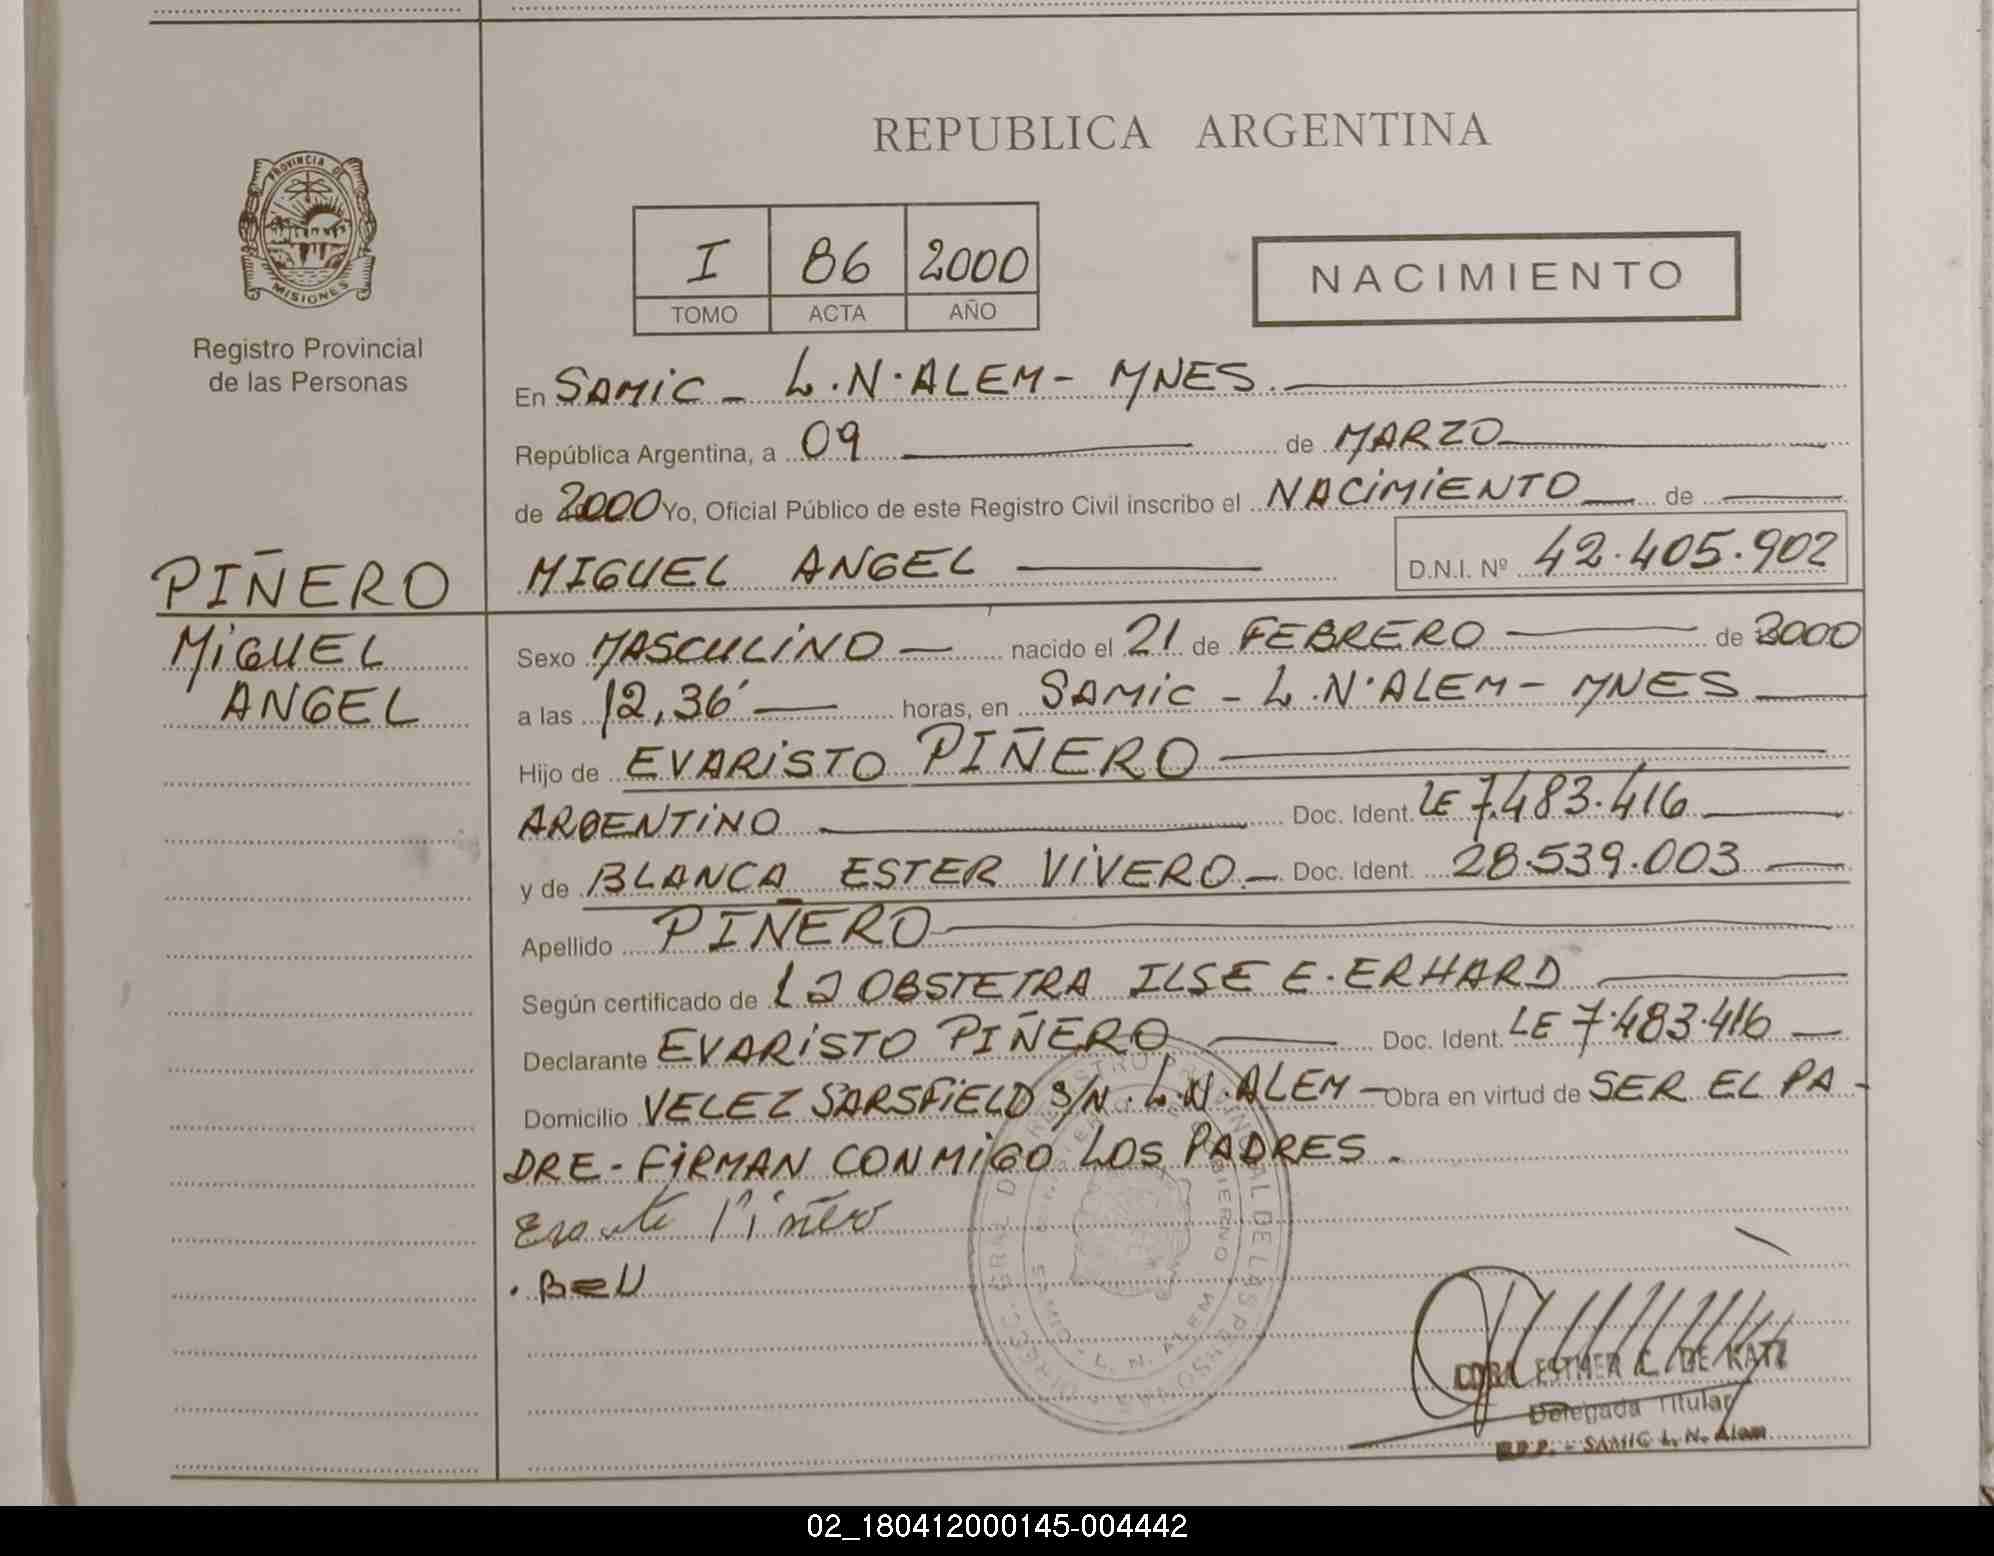 REPUBLICA ARGENTINA
PROVINCIA DE
MISIONES
Registro Provincial
de las Personas
I 86 2000
TOMO ACTA AÑO
NACIMIENTO
En SAMIC - L.N.ALEM - MNES.
República Argentina, a 09 de MARZO
de 2000 Yo, Oficial Público de este Registro Civil inscribo el NACIMIENTO de
MIGUEL ANGEL D.N.I. Nº 42.405.902
PIÑERO
MIGUEL
ANGEL
Sexo MASCULINO - nacido el 21 de FEBRERO de 2000
a las 12,36' horas, en SAMIC - L.N.ALEM - MNES
Hijo de EVARISTO PIÑERO
ARGENTINO Doc. Ident. LE 7.483.416
y de BLANCA ESTER VIVERO.- Doc. Ident. 28.539.003
Apellido PIÑERO
Según certificado de La OBSTETRA ILSE E. ERHARD
Declarante EVARISTO PIÑERO Doc. Ident. LE 7.483.416
Domicilio VELEZ SARSFIELD S/N. L.N.ALEM - Obra en virtud de SER EL PA-
DRE - FIRMAN CONMIGO LOS PADRES.
Piñero
ESTHER C. DE KATZ
Delegada Titular
R.P.P. - SAMIC L. N. Alem
02_180412000145-004442